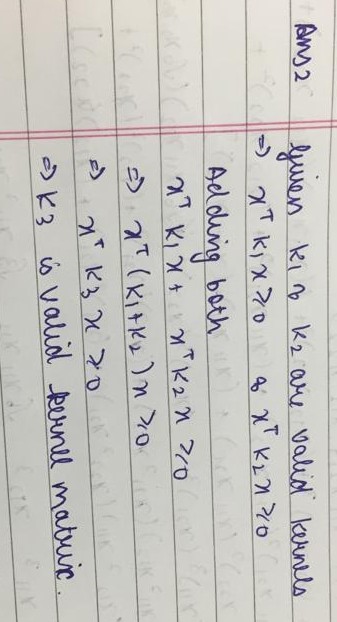 Ans 2 Given K1 & K2 are valid kernels
⇒ x^T K1 x ≥ 0 & x^T K2 x ≥ 0
Adding both
x^T K1 x + x^T K2 x ≥ 0
⇒ x^T (K1 + K2) x ≥ 0
⇒ x^T K3 x ≥ 0
⇒ K3 is valid kernel matrix.